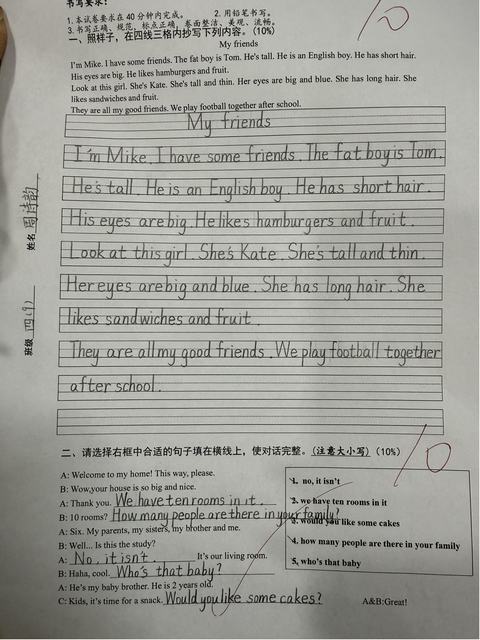 书写要求：
1.本试卷要求在40分钟内完成。 2.用铅笔书写。
3.书写正确、规范，标点正确，卷面整洁、美观、流畅。
一、照样子，在四线三格内抄写下列内容。(10%)
My friends
I'm Mike. I have some friends. The fat boy is Tom. He's tall. He is an English boy. He has short hair.
His eyes are big. He likes hamburgers and fruit.
Look at this girl. She's Kate. She's tall and thin. Her eyes are big and blue. She has long hair. She
likes sandwiches and fruit.
They are all my good friends. We play football together after school.
My friends
I'm Mike. I have some friends. The fat boy is Tom.
He's tall. He is an English boy. He has short hair.
His eyes are big. He likes hamburgers and fruit.
Look at this girl. She's Kate. She's tall and thin.
Her eyes are big and blue. She has long hair. She
likes sandwiches and fruit.
They are all my good friends. We play football together
after school.
姓名 周诗韵
班级 四(9)
10
二、请选择右框中合适的句子填在横线上，使对话完整。(注意大小写)(10%)
10
A: Welcome to my home! This way, please.
B: Wow,your house is so big and nice.
A: Thank you. We have ten rooms in it.
B: 10 rooms? How many people are there in your family?
A: Six. My parents, my sisters, my brother and me.
B: Well... Is this the study?
A: No, it isn't. It's our living room.
B: Haha, cool. Who's that baby?
A: He's my baby brother. He is 2 years old.
C: Kids, it's time for a snack. Would you like some cakes? A&B:Great!
1. no, it isn't
2. we have ten rooms in it
3. would you like some cakes
4. how many people are there in your family
5. who's that baby